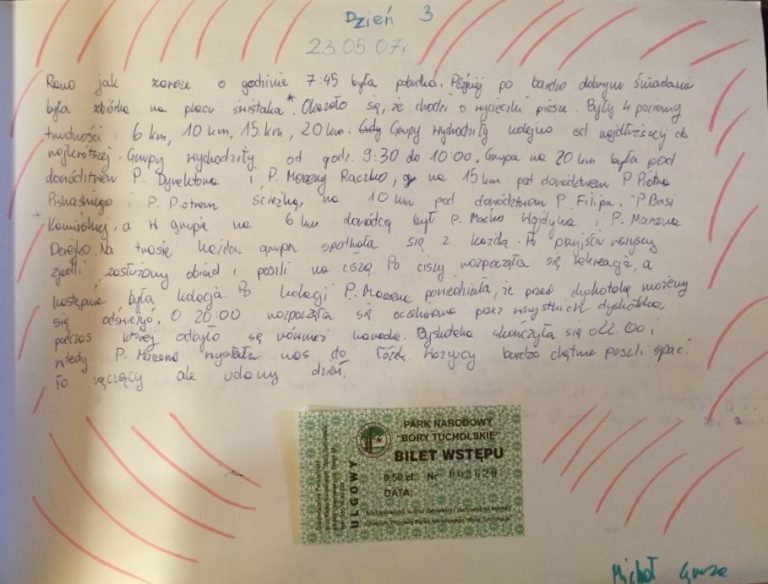 Dzień 3
23.05.07r
Rano jak zawsze o godzinie 7:45 była pobudka. Później po bardzo dobrym śniadaniu
była zbiórka na placu świstaka*. Okazało się, że chodzi o wycieczki piesze. Były 4 poziomy
trudności: 6 km, 10 km, 15 km, 20 km. Grupy wychodziły kolejno od najdłuższej do
najkrótszej. Grupy wychodziły od godz. 9:30 do 10:00. Grupa na 20 km była pod
dowództwem P. Dyrektora i P. Marzeny Raczko, na 15 km pod dowództwem P. Piotra
i P. Piotrem na 10 km pod dowództwem P. Filipa i P Basi
Kamińskiej, a w grupie na 6 km dowódcą był P. Maćko Wojdyka i P. Marzena
Derejko. Na trasie każda grupa spotkała się z każdą. Po przyjściu wszyscy
zjedli zasłużony obiad i poszli na ciszę. Po ciszy rozpoczęła się rekreacja, a
następnie była kolacja. Po kolacji P. Marzena powiedziała, że przed dyskoteką możemy
się odświeżyć. O 20:00 rozpoczęła się oczekiwana przez wszystkich dyskoteka,
podczas której odbyło się również karaoke. Dyskoteka skończyła się o 22:00 i
wtedy P. Marzena wysłała nas do łóżek. Wszyscy bardzo chętnie poszli spać.
To męczący ale udany dzień.
PARK NARODOWY
"BORY TUCHOLSKIE"
BILET WSTĘPU
0,50 zł Nr 002620
DATA:
ULGOWY
Michał